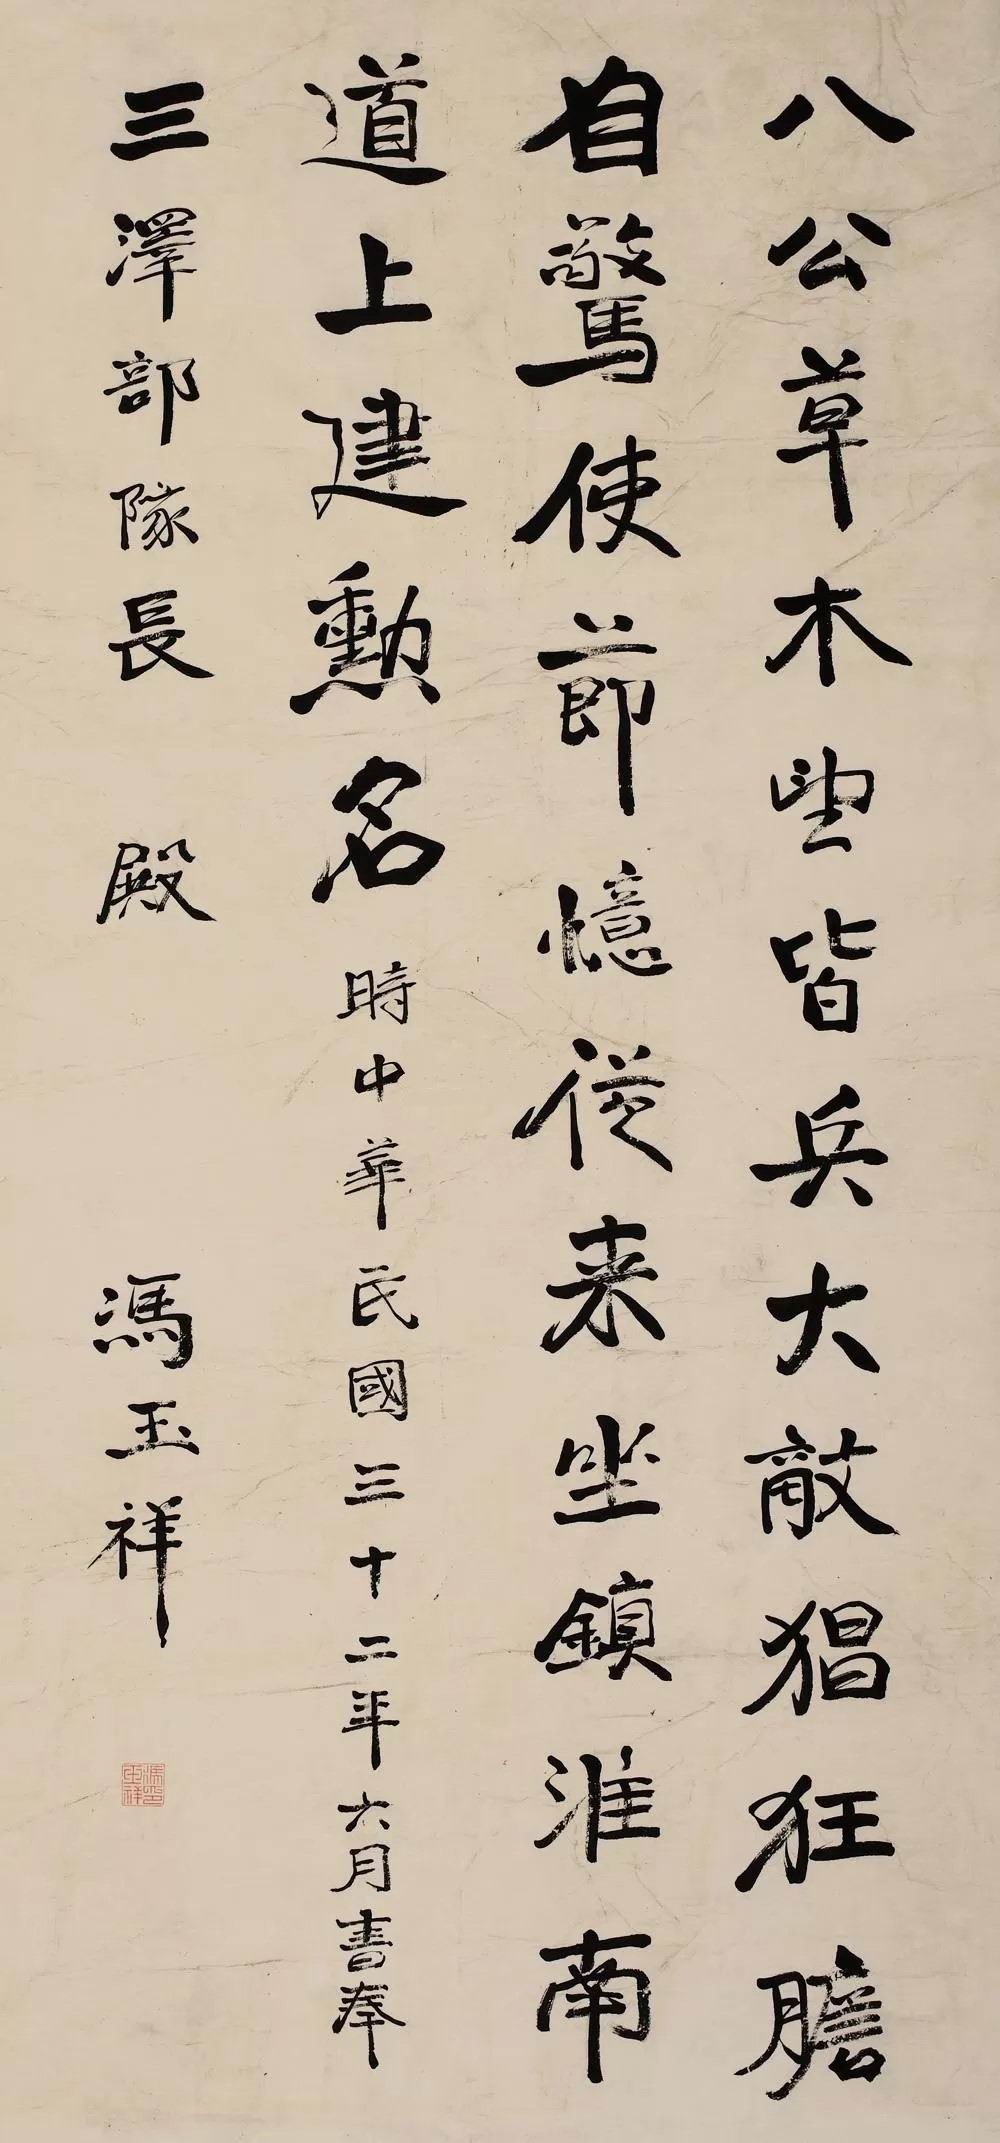 八公草木望皆兵大敵猖狂膽
自驚使節憶從来坐鎮淮南
道上建勳名時中華民國三十二年六月書奉
三澤部隊長 殿 馮玉祥
馮玉祥印